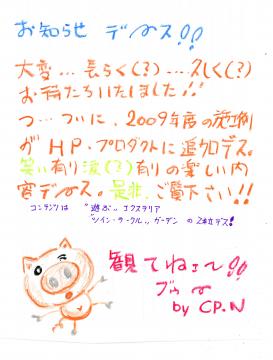 お知らせ デース!!
大変…長らく(?)…久しく(?)
お待たちいたしました!!
つ…ついに、2009年度の施工例
がHP・プロダクトに追加デス。
笑い有り涙(?)有りの楽しい内
容デース。是非、ご覧下さい!!
コンテンツは "遊ぶ" エクステリア
"ツイン・サークル" ガーデン の2本立デス!
観てねェ〜!!
ブゥー
by CP.N